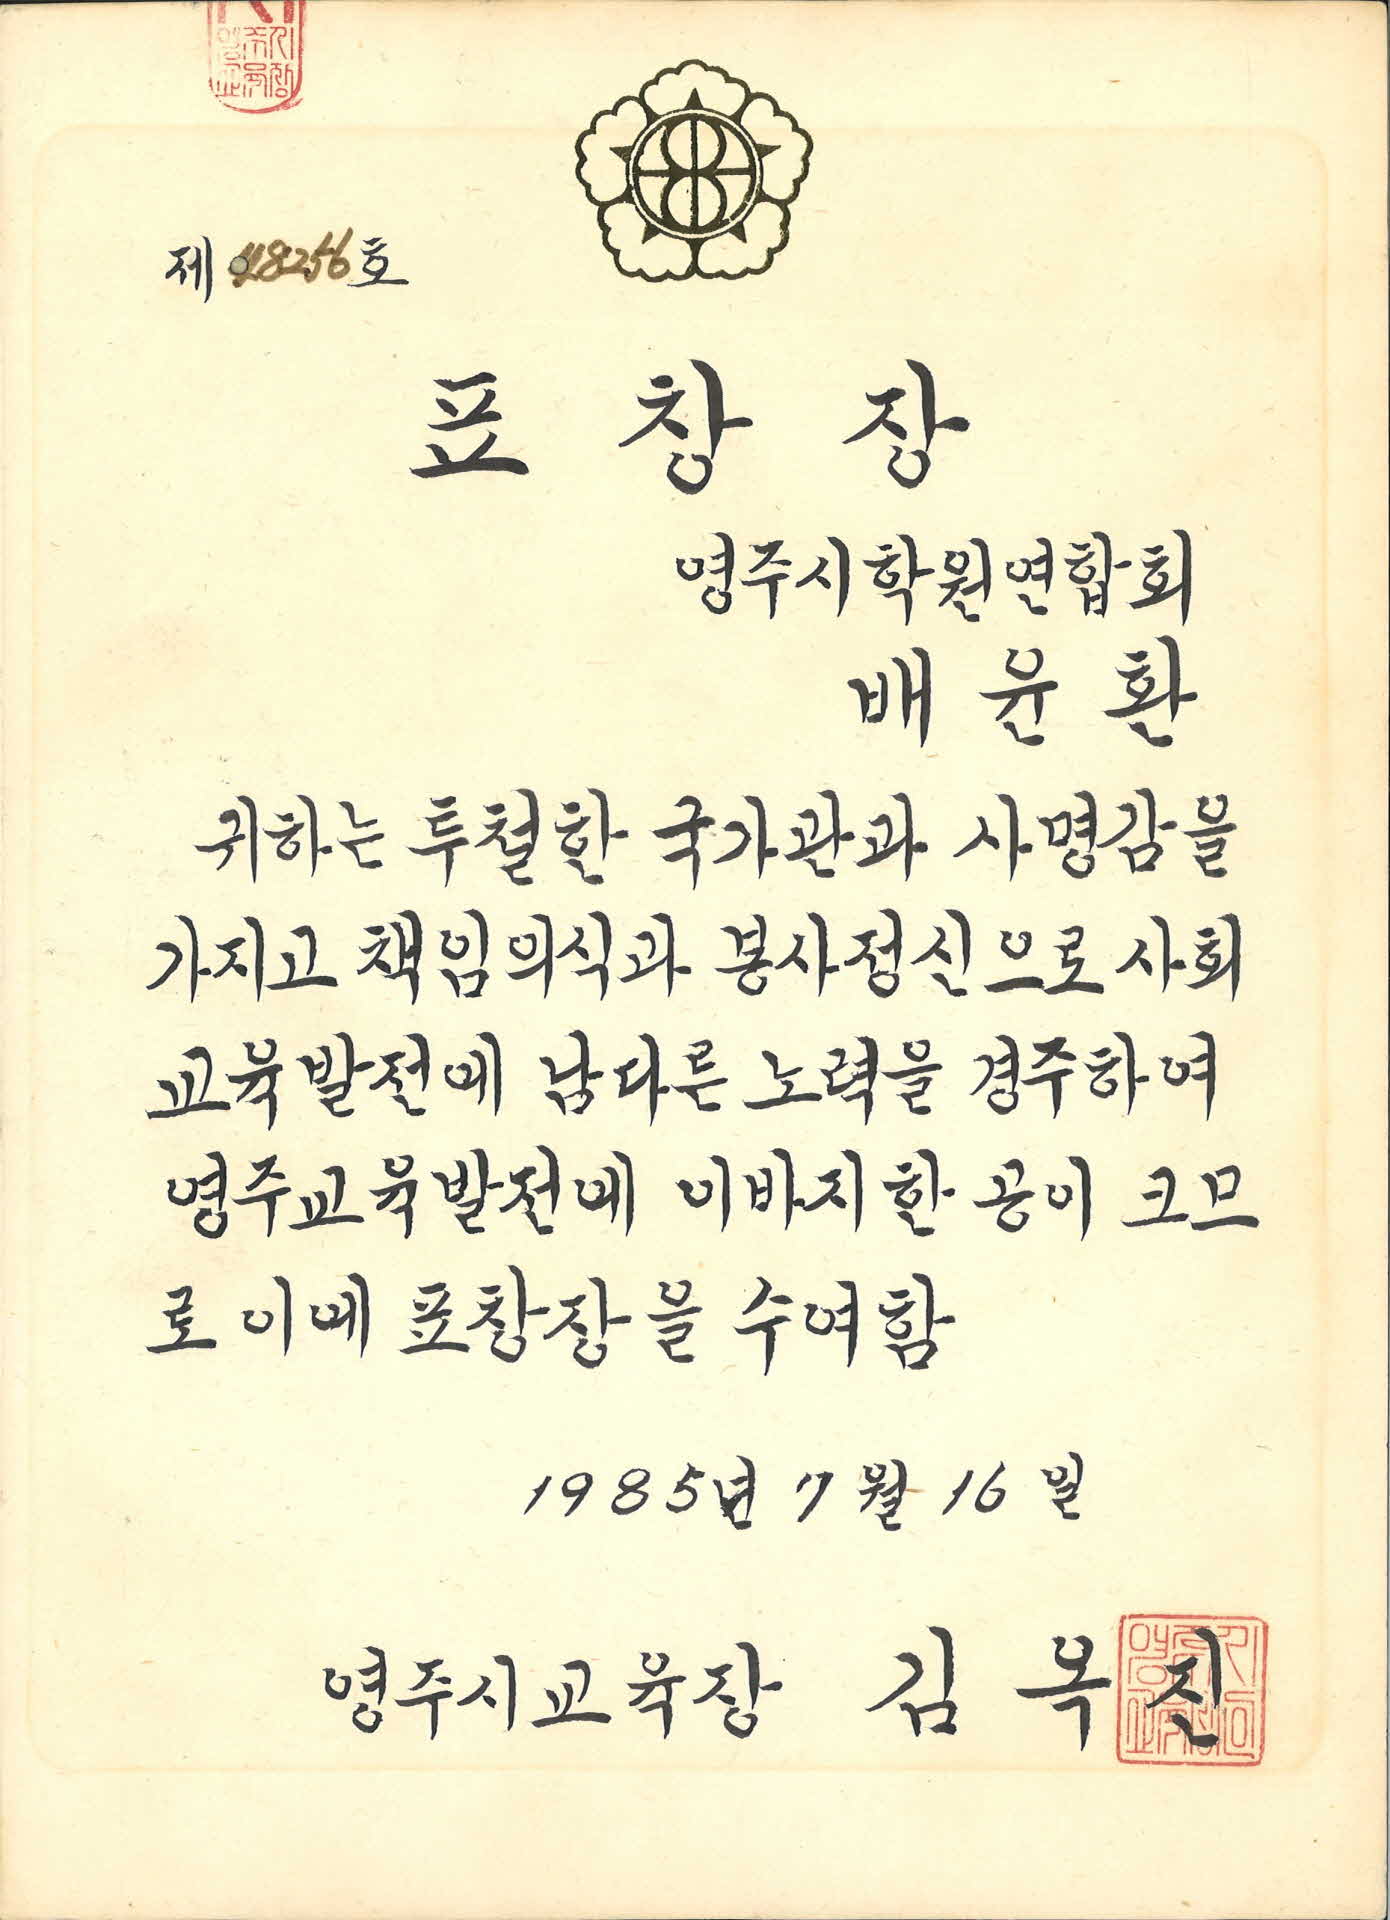 제 호
표 창 장
영주시학원연합회
배 윤 환
귀하는 투철한 국가관과 사명감을
가지고 책임의식과 봉사정신으로 사회
교육발전에 남다른 노력을 경주하여
영주교육발전에 이바지한 공이 크므
로 이에 표창장을 수여함
1985년 7월 16일
영주시교육장 김 옥 진